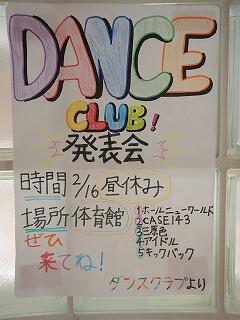 DANCE
CLUB!
発表会
時間 2/16 昼休み
場所 体育館
ぜひ
来てね!
1ホールニューワールド
2CASE143
3三原色
4アイドル
5キックバック
ダンスクラブより